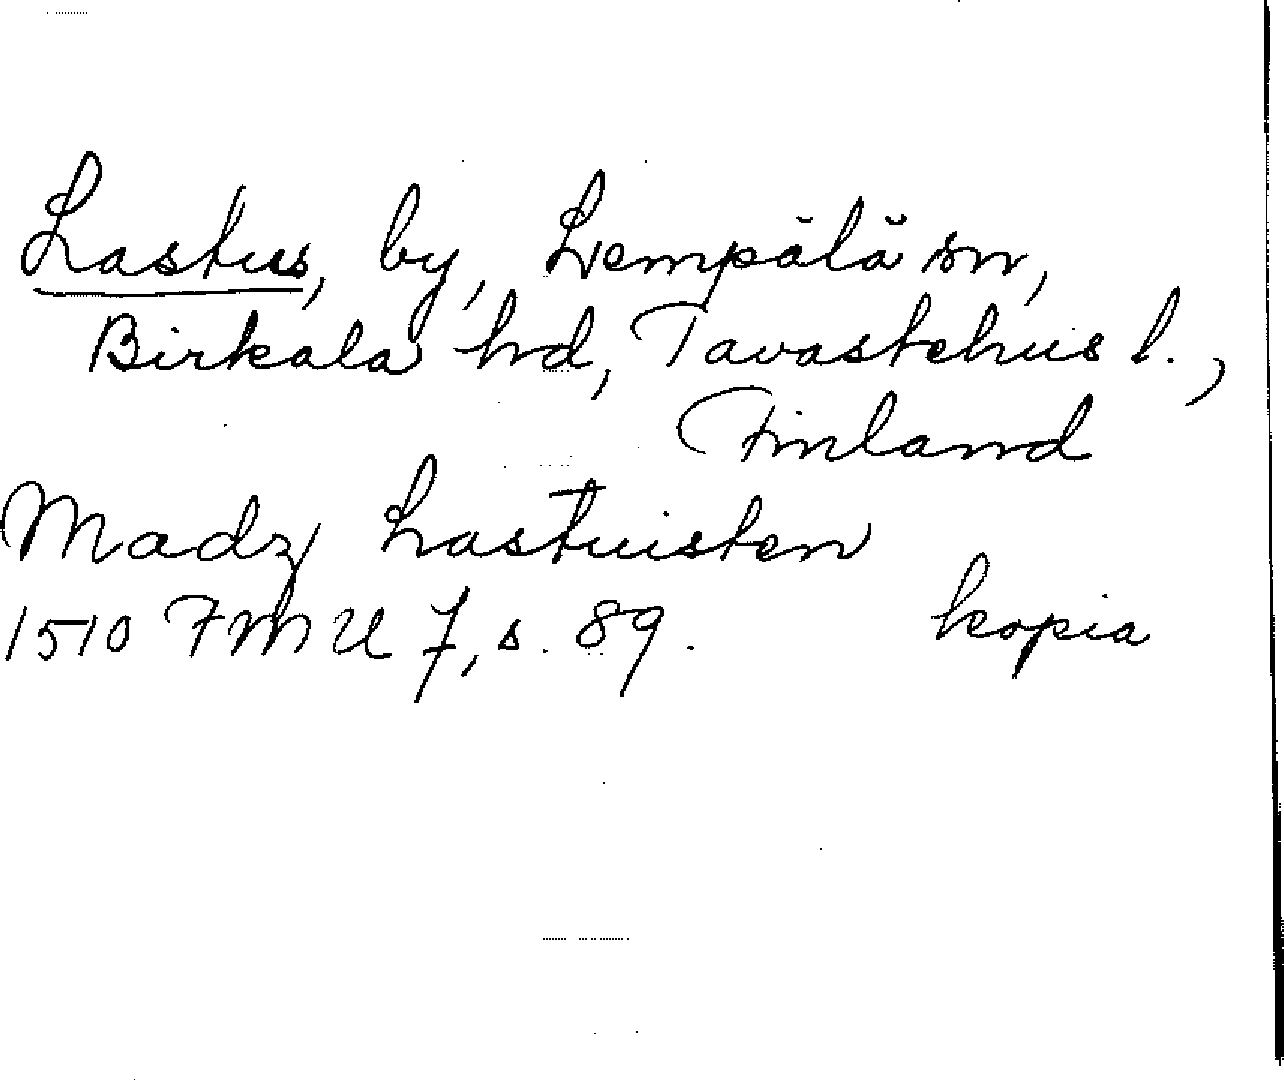 Lastus, by, Lempälä sn,
Birkala hd, Tavastehus l.,
Finland
Madz Lastuisten
1510 FMU 7, s. 89. kopia